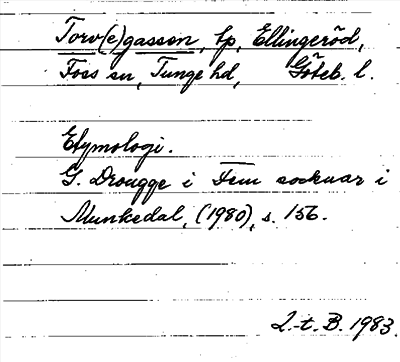 Torv(e)gassen, tp, Ellingeröd,
Foss sn, Tunge hd, Göteb. l.
Etymologi.
G. Drougge i Fem socknar i
Munkedal, (1980), s. 156.
L.-t. B. 1983.